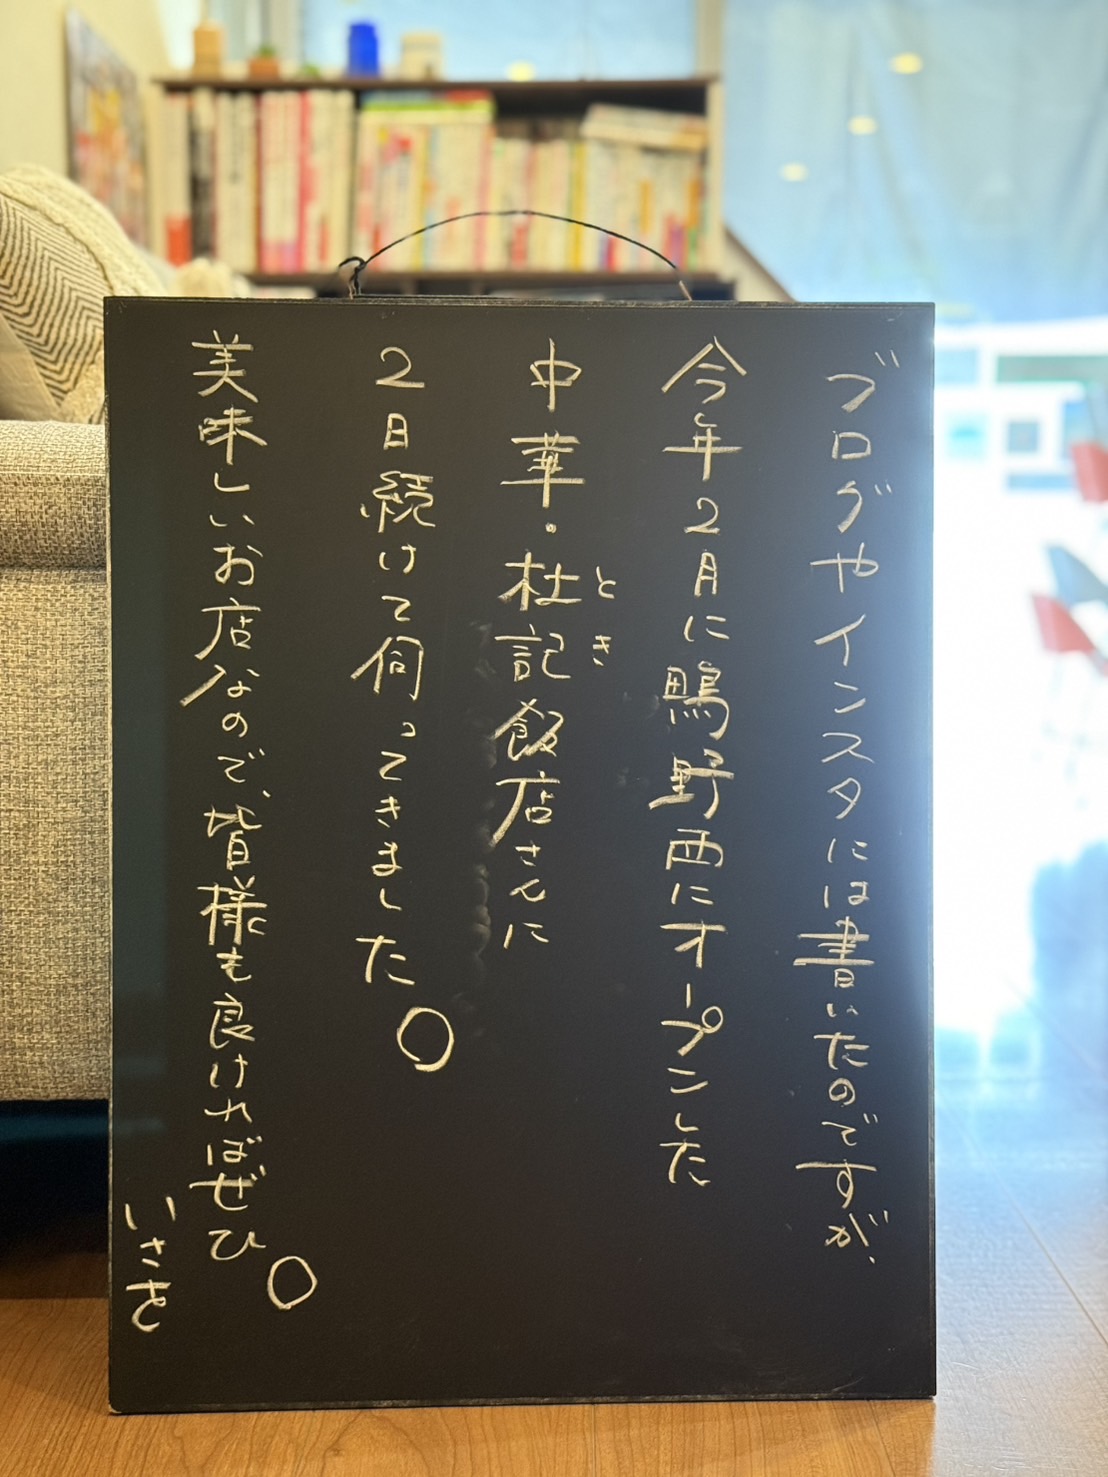 ブログやインスタには書いたのですが、
今年2月に鴫野西にオープンした
中華・杜記飯店さんに
とき
2日続けて伺ってきました。
美味しいお店なので、皆様も良ければぜひ。
いさを